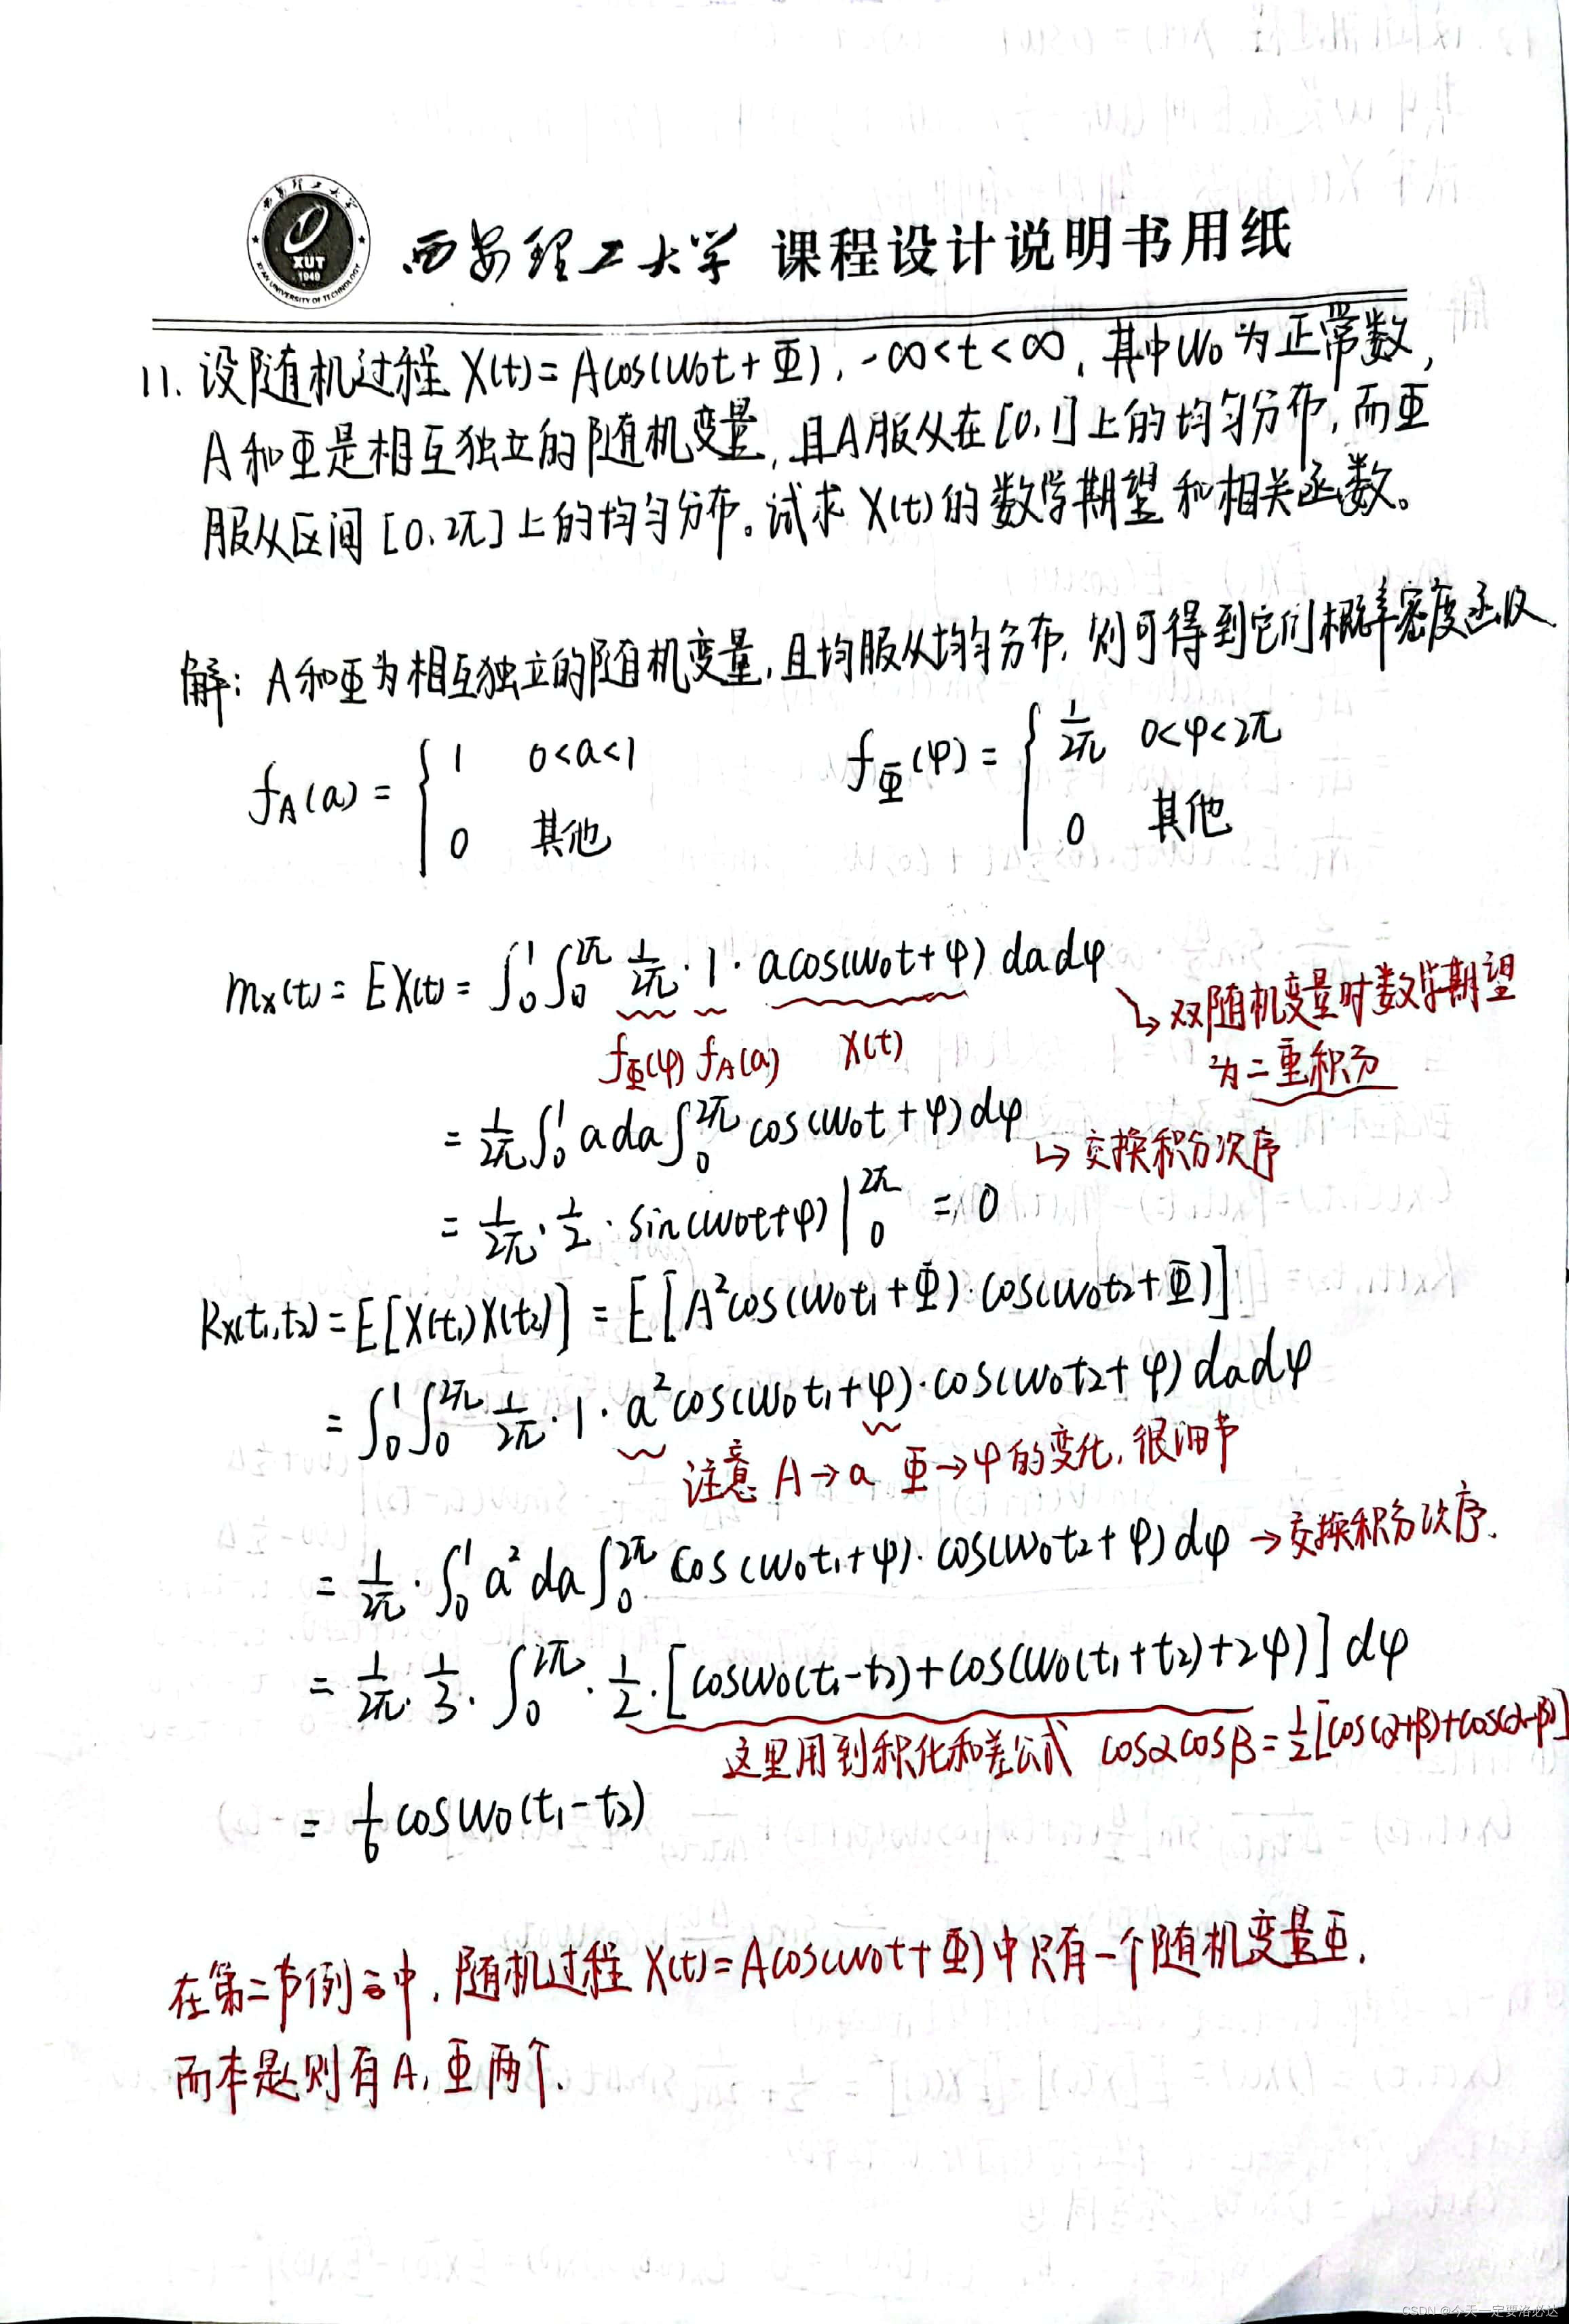 西安理工大学 课程设计说明书用纸
XUT
1949
XI'AN UNIVERSITY OF TECHNOLOGY
11. 设随机过程 X(t)=Acos(ω₀t+Φ), -∞<t<∞, 其中ω₀为正常数,
A和Φ是相互独立的随机变量, 且A服从在[0,1]上的均匀分布, 而Φ
服从区间[0,2π]上的均匀分布。试求X(t)的数学期望和相关函数。
解: A和Φ为相互独立的随机变量, 且均服从均匀分布, 则可得到它们概率密度函数
f_A(a) = { 1 0<a<1 ; 0 其他 f_Φ(φ) = { 1/2π 0<φ<2π ; 0 其他
m_X(t) = EX(t) = ∫₀¹∫₀^{2π} 1/2π · 1 · acos(ω₀t+φ) dadφ
↳ 双随机变量时数学期望
为二重积分
f_Φ(φ) f_A(a) X(t)
= 1/2π ∫₀¹ ada ∫₀^{2π} cos(ω₀t+φ)dφ
↳ 交换积分次序
= 1/2π · 1/2 · sin(ω₀t+φ)|₀^{2π} = 0
R_X(t₁,t₂) = E[X(t₁)X(t₂)] = E[A²cos(ω₀t₁+Φ)·cos(ω₀t₂+Φ)]
= ∫₀¹∫₀^{2π} 1/2π · 1 · a²cos(ω₀t₁+φ)·cos(ω₀t₂+φ) dadφ
注意 A→a Φ→φ的变化, 很细节
= 1/2π · ∫₀¹ a²da ∫₀^{2π} cos(ω₀t₁+φ)·cos(ω₀t₂+φ)dφ → 交换积分次序.
= 1/2π · 1/3 · ∫₀^{2π} · 1/2 · [cosω₀(t₁-t₂)+cos(ω₀(t₁+t₂)+2φ)] dφ
这里用到积化和差公式 cosαcosβ=1/2[cos(α+β)+cos(α-β)]
= 1/6 cosω₀(t₁-t₂)
在第二节例三中, 随机过程 X(t)=Acos(ω₀t+Φ)中只有一个随机变量Φ,
而本题则有A, Φ两个.
CSDN @今天一定要洛必达